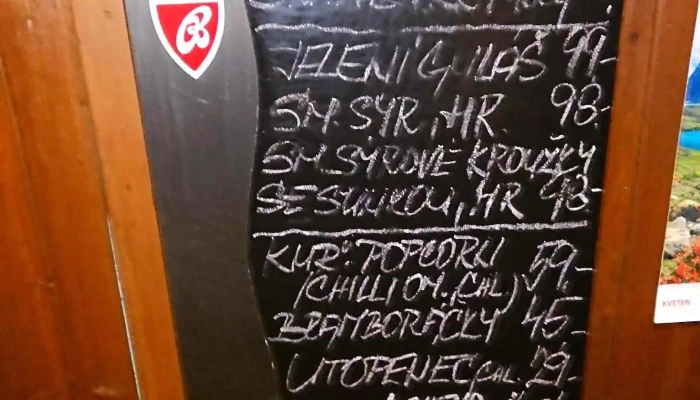 JELENÍ GULÁŠ 99-
SM SÝR, HR 98-
SM SÝROVÉ KROUŽKY
SE ŠUNKOU, HR 98-
KUŘ. POPCORN 59-
(CHILLI OM. CHL)
BRAMBORÁČKY 45-
UTOPENEC CHL. 29-
KVĚTEN